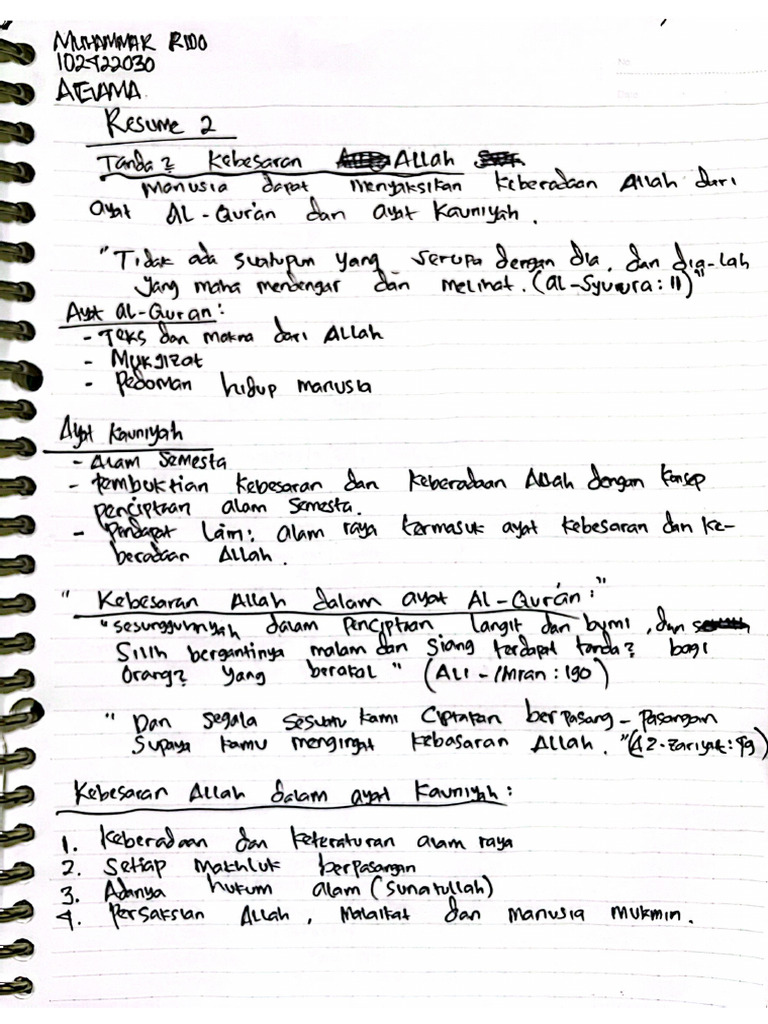 MUHAMMAR RIDO
102422030
AGAMA
No
Date
Resume 2
Tanda2 Kebesaran Allah
Manusia dapat menyaksikan keberadaan Allah dari
ayat AL-Qur'an dan ayat Kauniyah.
"Tidak ada suatupun yang serupa dengan dia, dan dia-lah
yang maha mendengar dan melihat. (al-Syuura: 11)"
Ayat al-Quran:
- Teks dan makna dari Allah
- Mukjizat
- Pedoman hidup manusia
Ayat Kauniyah
- Alam Semesta
- Pembuktian kebesaran dan keberadaan Allah dengan konsep
penciptaan alam semesta.
- Pendapat Lain: alam raya termasuk ayat kebesaran dan ke-
beradaan Allah.
" Kebesaran Allah dalam ayat Al-Qur'an:"
"sesungguhnyah dalam penciptaan langit dan bumi, dan
Silih bergantinya malam dan siang terdapat tanda2 bagi
orang2 yang berakal" (ALI-Imran: 190)
" Dan segala sesuatu kami ciptakan berpasang-pasangan
Supaya kamu mengingat kebasaran Allah. "(AZ-zariyat: 49)
Kebesaran Allah dalam ayat Kauniyah:
1. Keberadaan dan keteraturan alam raya
2. Setiap makhluk berpasangan
3. Adanya hukum alam (Sunatullah)
4. Persaksian Allah, Malaikat dan manusia mukmin.